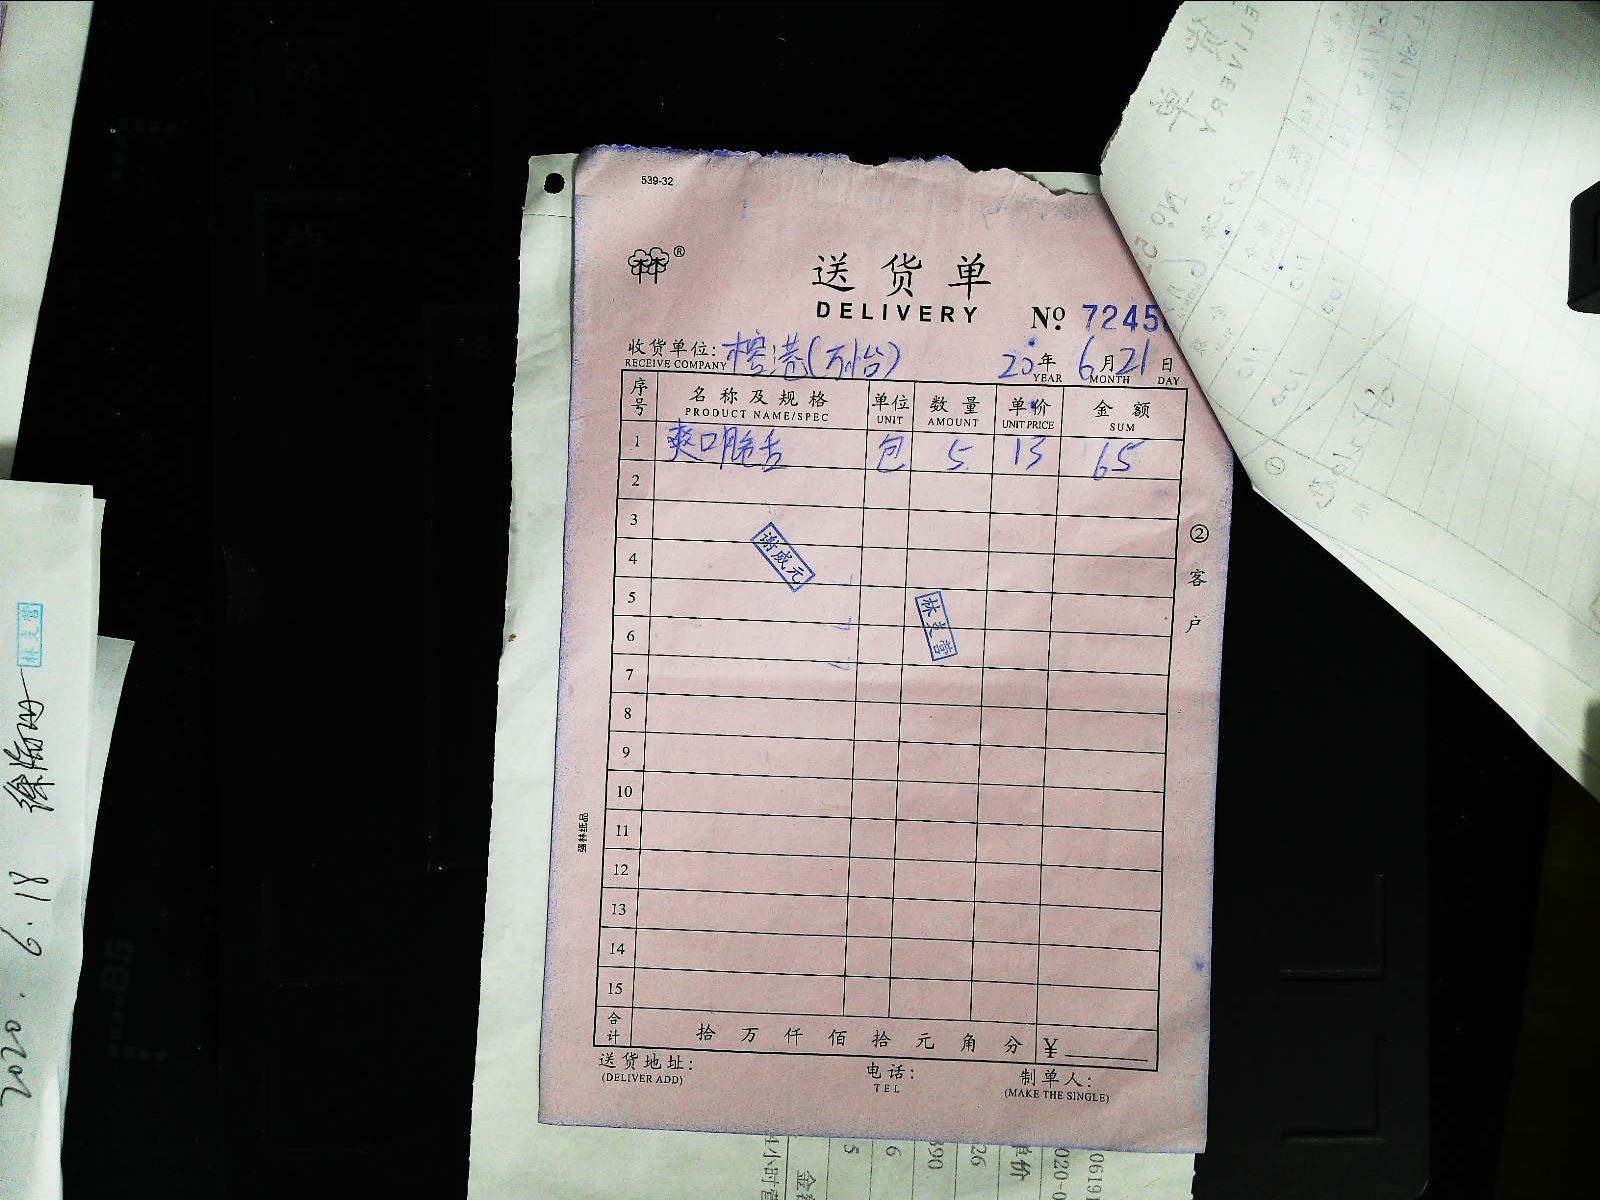 539-32
林®
送货单
DELIVERY
№ 7245
收货单位: 榕港(万怡) 20年 6月 21日
RECEIVE COMPANY YEAR MONTH DAY
序号 名称及规格 单位 数量 单价 金额
PRODUCT NAME/SPEC UNIT AMOUNT UNIT PRICE SUM
1 爽口脆舌 包 5 13 65
2
3
谢威元
4
5
林支营
6
7
8
9
10
11
12
13
14
15
合计 拾 万 仟 佰 拾 元 角 分 ¥
送货地址: 电话: 制单人:
(DELIVER ADD) TEL (MAKE THE SINGLE)
②客户
强林纸品
林支营
2020.6.18